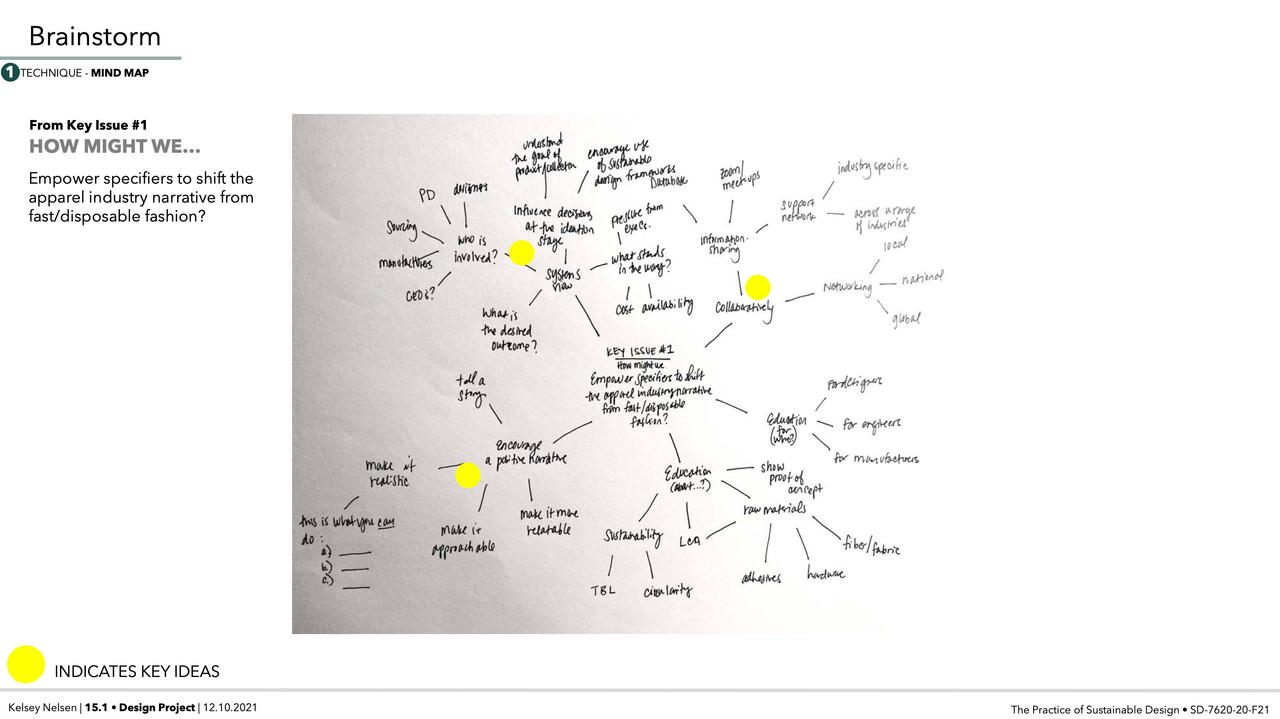 Brainstorm
1
TECHNIQUE - MIND MAP
From Key Issue #1
HOW MIGHT WE...
Empower specifiers to shift the
apparel industry narrative from
fast/disposable fashion?
understand
the goal of
product/collection
encourage use
of sustainable
design frameworks
PD
designers
Sourcing
manufacturers
CEO's?
who is
involved?
Influence decisions
at the ideation
stage
systems
view
What is
the desired
outcome?
pressure from
execs.
what stands
in the way?
cost
availability
Database
zoom/
meetups
information
sharing
support
network
industry specific
across a range
of industries
Collaboratively
Networking
local
national
global
KEY ISSUE #1
How might we
Empower specifiers to shift
the apparel industry narrative
from fast/disposable
fashion?
tell a
story
encourage
a positive narrative
make it
realistic
this is what you can
do:
a)
b)
c)
make it
approachable
make it more
relatable
Education
(for
who?)
For designers
for engineers
for manufacturers
Education
(about...?)
show
proof of
concept
raw materials
Sustainability
LCA
TBL
circularity
adhesives
hardware
fiber/fabric
INDICATES KEY IDEAS
Kelsey Nelsen | 15.1 • Design Project | 12.10.2021
The Practice of Sustainable Design • SD-7620-20-F21